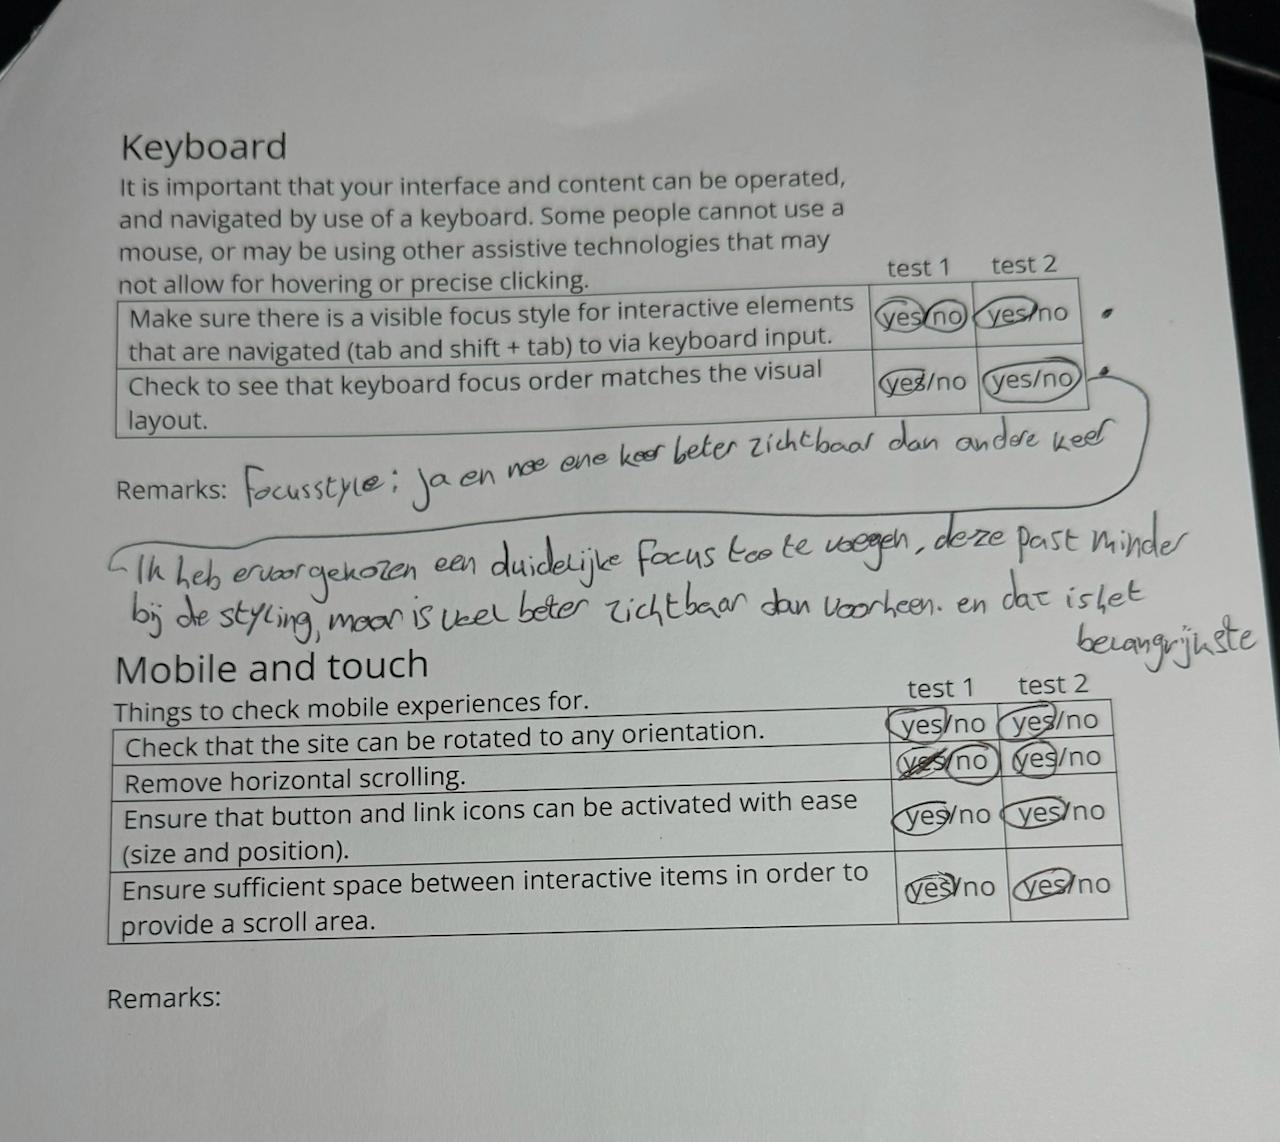 Keyboard
It is important that your interface and content can be operated,
and navigated by use of a keyboard. Some people cannot use a
mouse, or may be using other assistive technologies that may
not allow for hovering or precise clicking.
test 1 test 2
Make sure there is a visible focus style for interactive elements yes/no yes/no
that are navigated (tab and shift + tab) to via keyboard input.
Check to see that keyboard focus order matches the visual yes/no yes/no
layout.
Remarks: Focusstyle: ja en nee ene keer beter zichtbaar dan andere keer
Ik heb ervoor gekozen een duidelijke focus toe te voegen, deze past minder
bij de styling, maar is veel beter zichtbaar dan voorheen. en dat is het
belangrijkste
Mobile and touch
Things to check mobile experiences for.
test 1 test 2
Check that the site can be rotated to any orientation. yes/no yes/no
Remove horizontal scrolling. yes/no yes/no
Ensure that button and link icons can be activated with ease yes/no yes/no
(size and position).
Ensure sufficient space between interactive items in order to yes/no yes/no
provide a scroll area.
Remarks: